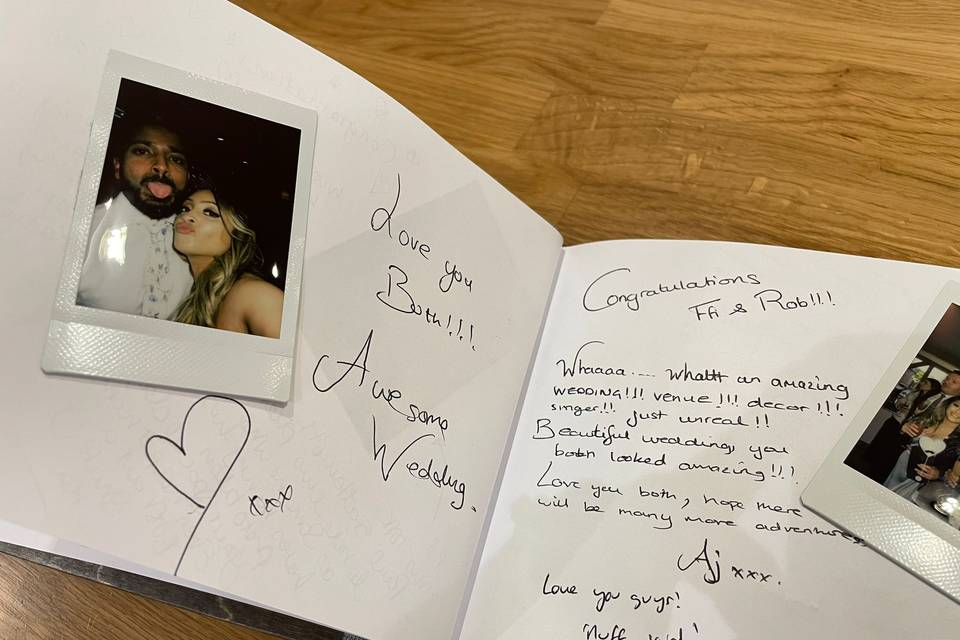 Love you
Both!!!.
Awesome
Wedding.
xxx
Congratulations
Ffi & Rob!!!.
Whaaaa.... whatt an amazing
WEDDING!!! venue !!! decor !!!
singer!!. just unreal!!
Beautiful wedding, you
both looked amazing!!!
Love you both, hope there
will be many more adventures
Aj xxx.
Love you guys!
'Nuff said'